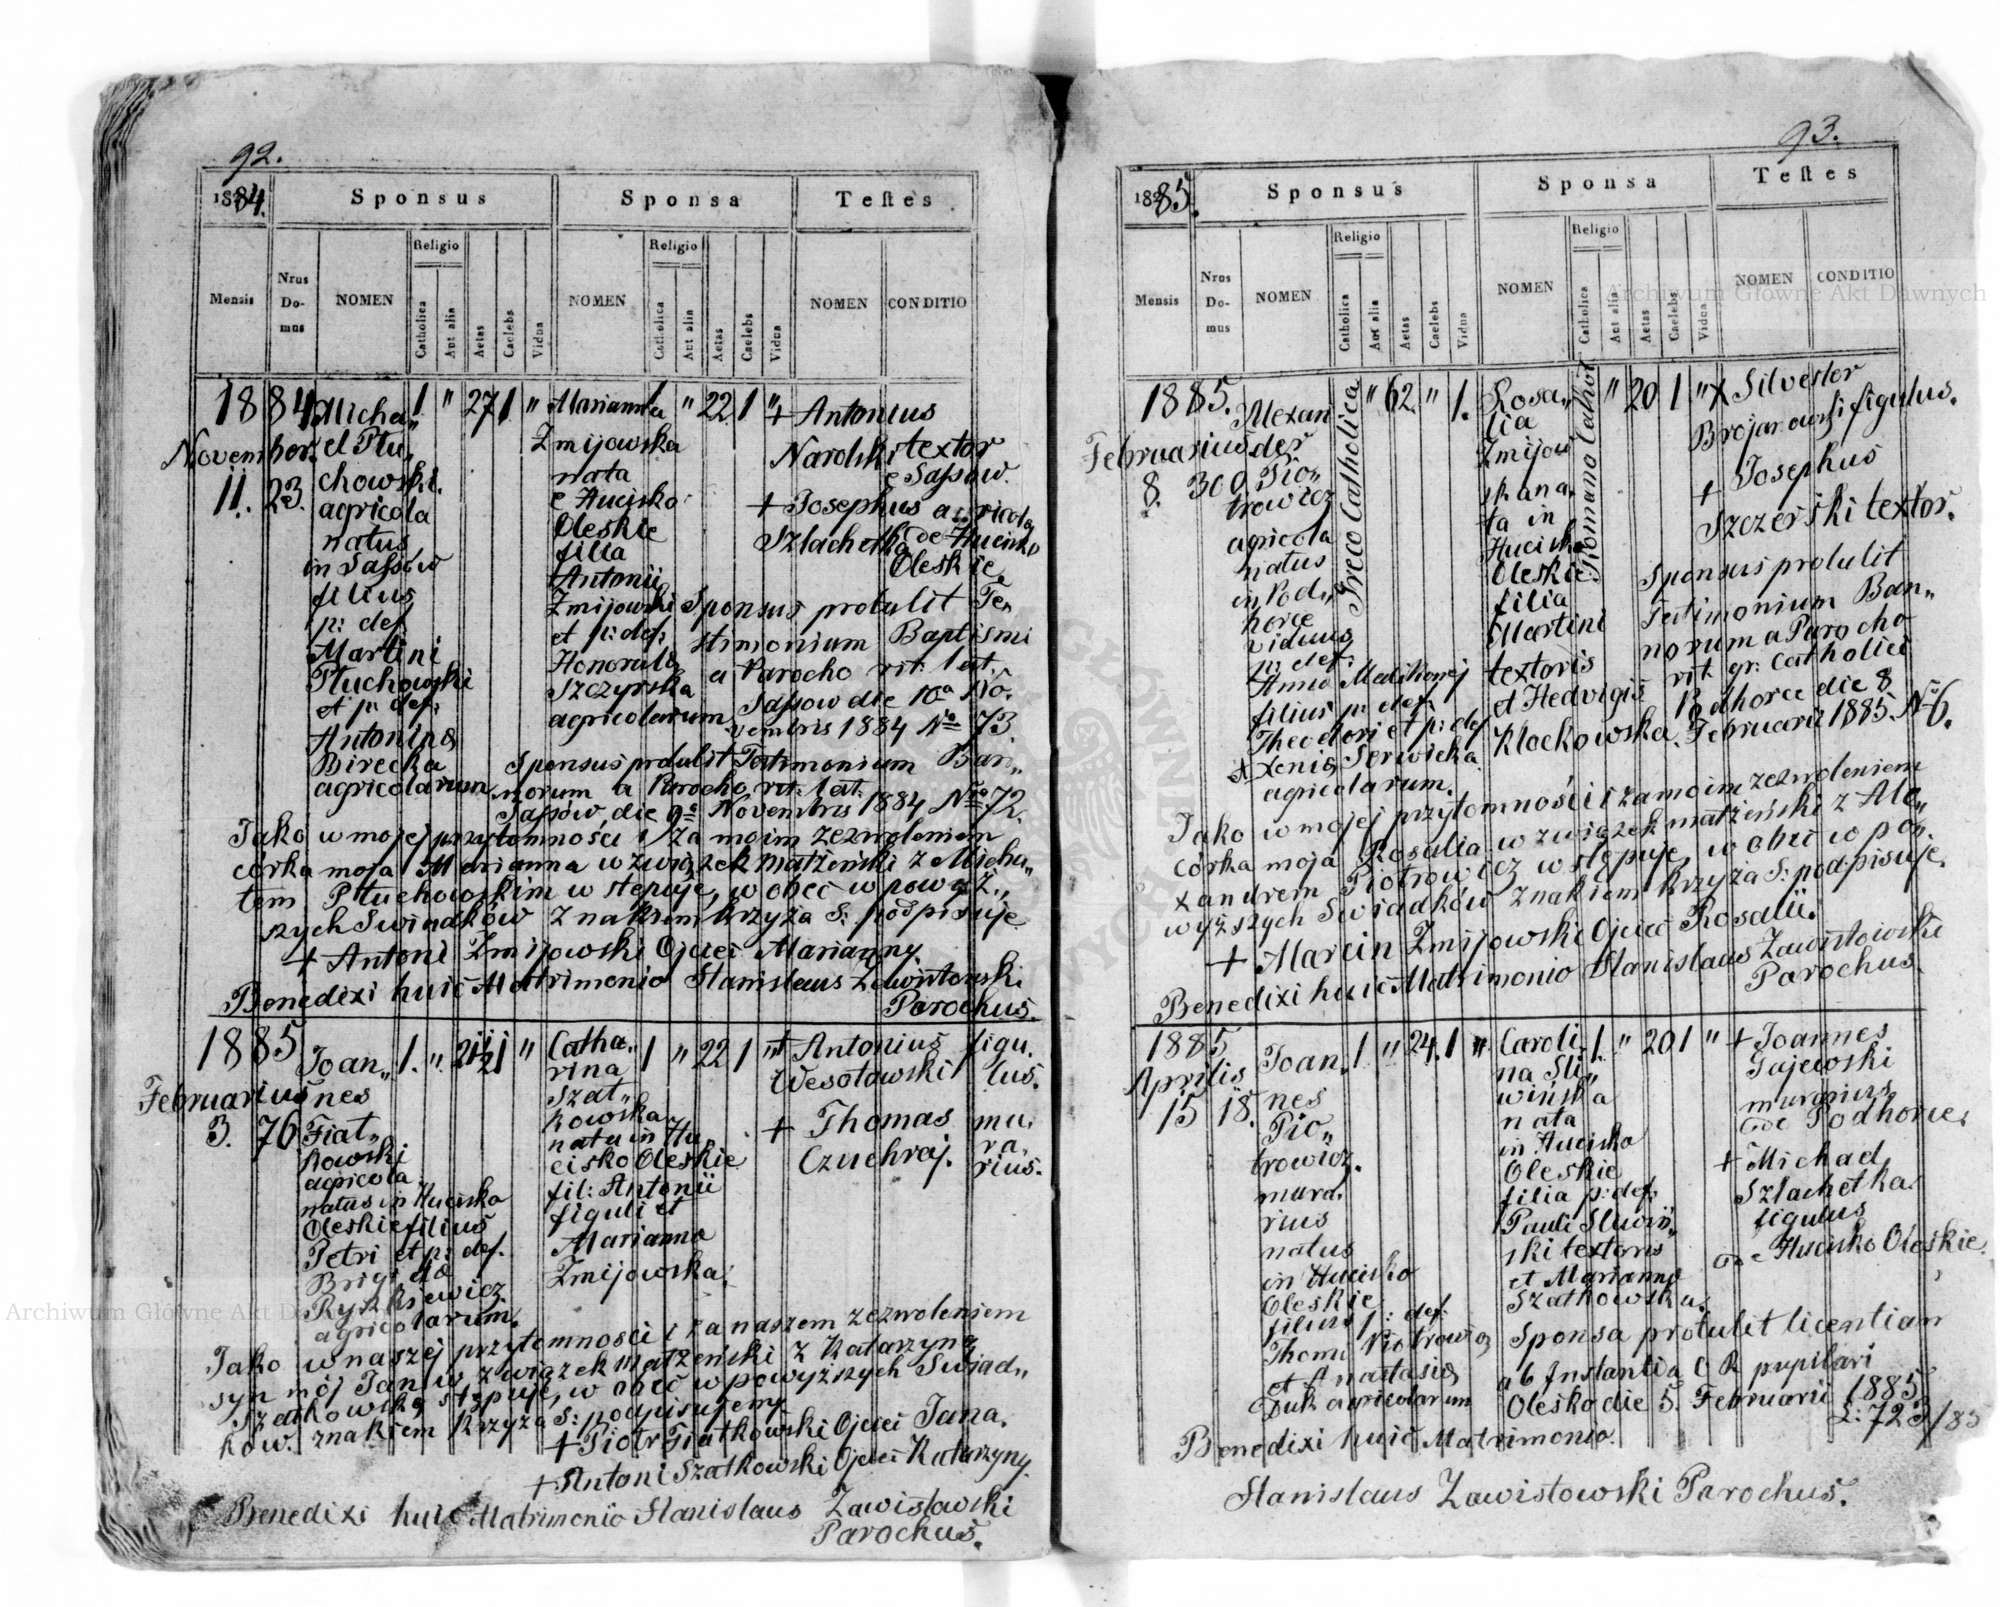 92.
1884.
Sponsus
Sponsa
Testes
Mensis
Nrus Do-mus
NOMEN
Religio
Catholica
Aut alia
Aetas
Caelebs
Vidua
NOMEN
Religio
Catholica
Aut alia
Aetas
Caelebs
Vidua
NOMEN
CONDITIO
1884
November
11. 23.
Micha„
el Płu„
chowski.
agricola
natus
in Sassów
filius
p: def.
Martini
Płuchowski
et p: def:
Antonina
Birecka
agricolarum
1 " 27 1 "
Marianna
Zmijowska
nata
e Hucisko
Oleskie
filia
Antonii
Zmijowski
et p: def:
Honorata
Szczyrska
agricolarum
1 " 22 1 "
+ Antonius
Narolski textor
e Sassow.
+ Josephus agricola
Szlachetka de Hucisko
Oleskie
Sponsus protulit Te„
stimonium Baptismi
a Parocho rit: lat.
Sassow die 10a No„
vembris 1884 Nro 73.
Sponsus protulit Testimonium Ban„
norum a Parocho rit: lat.
Sassów, die 9a Novembris 1884 Nro 72.
Jako w mojej przytomności i za moim zezwoleniem
córka moja Marianna w związek małżeński z Micha„
łem Płuchowskim wstępuje, w obec w powyż„
szych Swiadków znakiem krzyża S: podpisuje
+ Antoni Zmijowski Ojciec Marianny.
Benedixi huic Matrimonio Stanislaus Zawistowski
Parochus.
1885
Februarius
3. 76
Joan„
nes
Fiat„
kowski
agricola
natus in Huciska
Oleskie filius
Petri et p: def.
Brigida
Ryszkiewicz
agricolarum.
1. " 21 1 "
Catha„
rina
Szat„
kowska
nata in Hu„
cisko Oleskie
fil: Antonii
figuli et
Marianna
Zmijowska.
1 " 22 1 "
+ Antonius figu„
Wesołowski lus.
+ Thomas mu„
Czuchraj. ra„
rius.
Jako w naszej przytomnosci i za naszem zezwoleniem
syn mój Jan w związek małżeński z Katarzyną
Szatkowską wstępuje, w obec w powyższych Swiad„
ków. znakiem krzyża S: podpisujemy
+ Piotr Fiatkowski Ojciec Jana.
+ Antoni Szatkowski Ojciec Katarzyny.
Benedixi huic Matrimonio Stanislaus Zawistowski
Parochus.
93.
1885.
Sponsus
Sponsa
Testes
Mensis
Nrus Do-mus
NOMEN
Religio
Catholica
Aut alia
Aetas
Caelebs
Vidua
NOMEN
Religio
Catholica
Aut alia
Aetas
Caelebs
Vidua
NOMEN
CONDITIO
1885.
Februarius
8. 300
Alexan„
der
Pio„
trowicz
agricola
natus
in Pod„
horce
viduus
p: def:
Anna Melikowej
filius p: def:
Theodori et p: def
Xenia Serwicka
agricolarum.
Greco Catholica
" 62. " 1.
Rosa„
lia
Zmijow
ska na„
ta in
Hucisko
Oleskie.
filia
Martini
textoris
et Hedvigis
Klockowska.
Romano Cathol
" 20 1 "
+ Silvester
Brojanowski figulus.
+ Josephus
Szczerski textor.
Sponsus protulit
Testimonium Ban„
norum a Parocho
rit. gr: catholici
Podhorce die 8
Februarii 1885. No 6.
Jako w mojej przytomności i za moim zezwoleniem
córka moja Rosalia w związek małżeński z Ale„
xandrem Piotrowicz wstępuje, w obec w po„
wyższych Swiadków znakiem krzyża S: podpisuje.
+ Marcin Zmijowski Ojciec Rosalii.
Benedixi huic Matrimonio Stanislaus Zawistowski
Parochus.
1885
Aprilis
15 18.
Joan„
nes
Pio„
trowicz.
mura„
rius
natus
in Hucisko
Oleskie
filius p: def.
Thoma Piotrowicz
et Anastasia
Duk agricolarum
1 " 24. 1 "
Caroli„
na Sli„
wińska
nata
in Hucisko
Oleskie
filia p: def:
Pauli Sliwiń„
ski textoris
et Marianna
Szatkowska.
1. " 20 1 "
+ Joannes
Gajewski
murarius
de Podhorce.
+ Michael
Szlachetka
figulus
de Hucisko Oleskie
Sponsa protulit licentiam
ab Instantia C R pupilari
Olesko die 5. Februarii 1885
L: 723/85
Benedixi huic Matrimonio.
Stanislaus Zawistowski Parochus.
Archiwum Główne Akt Dawnych
Archiwum Główne Akt Dawnych